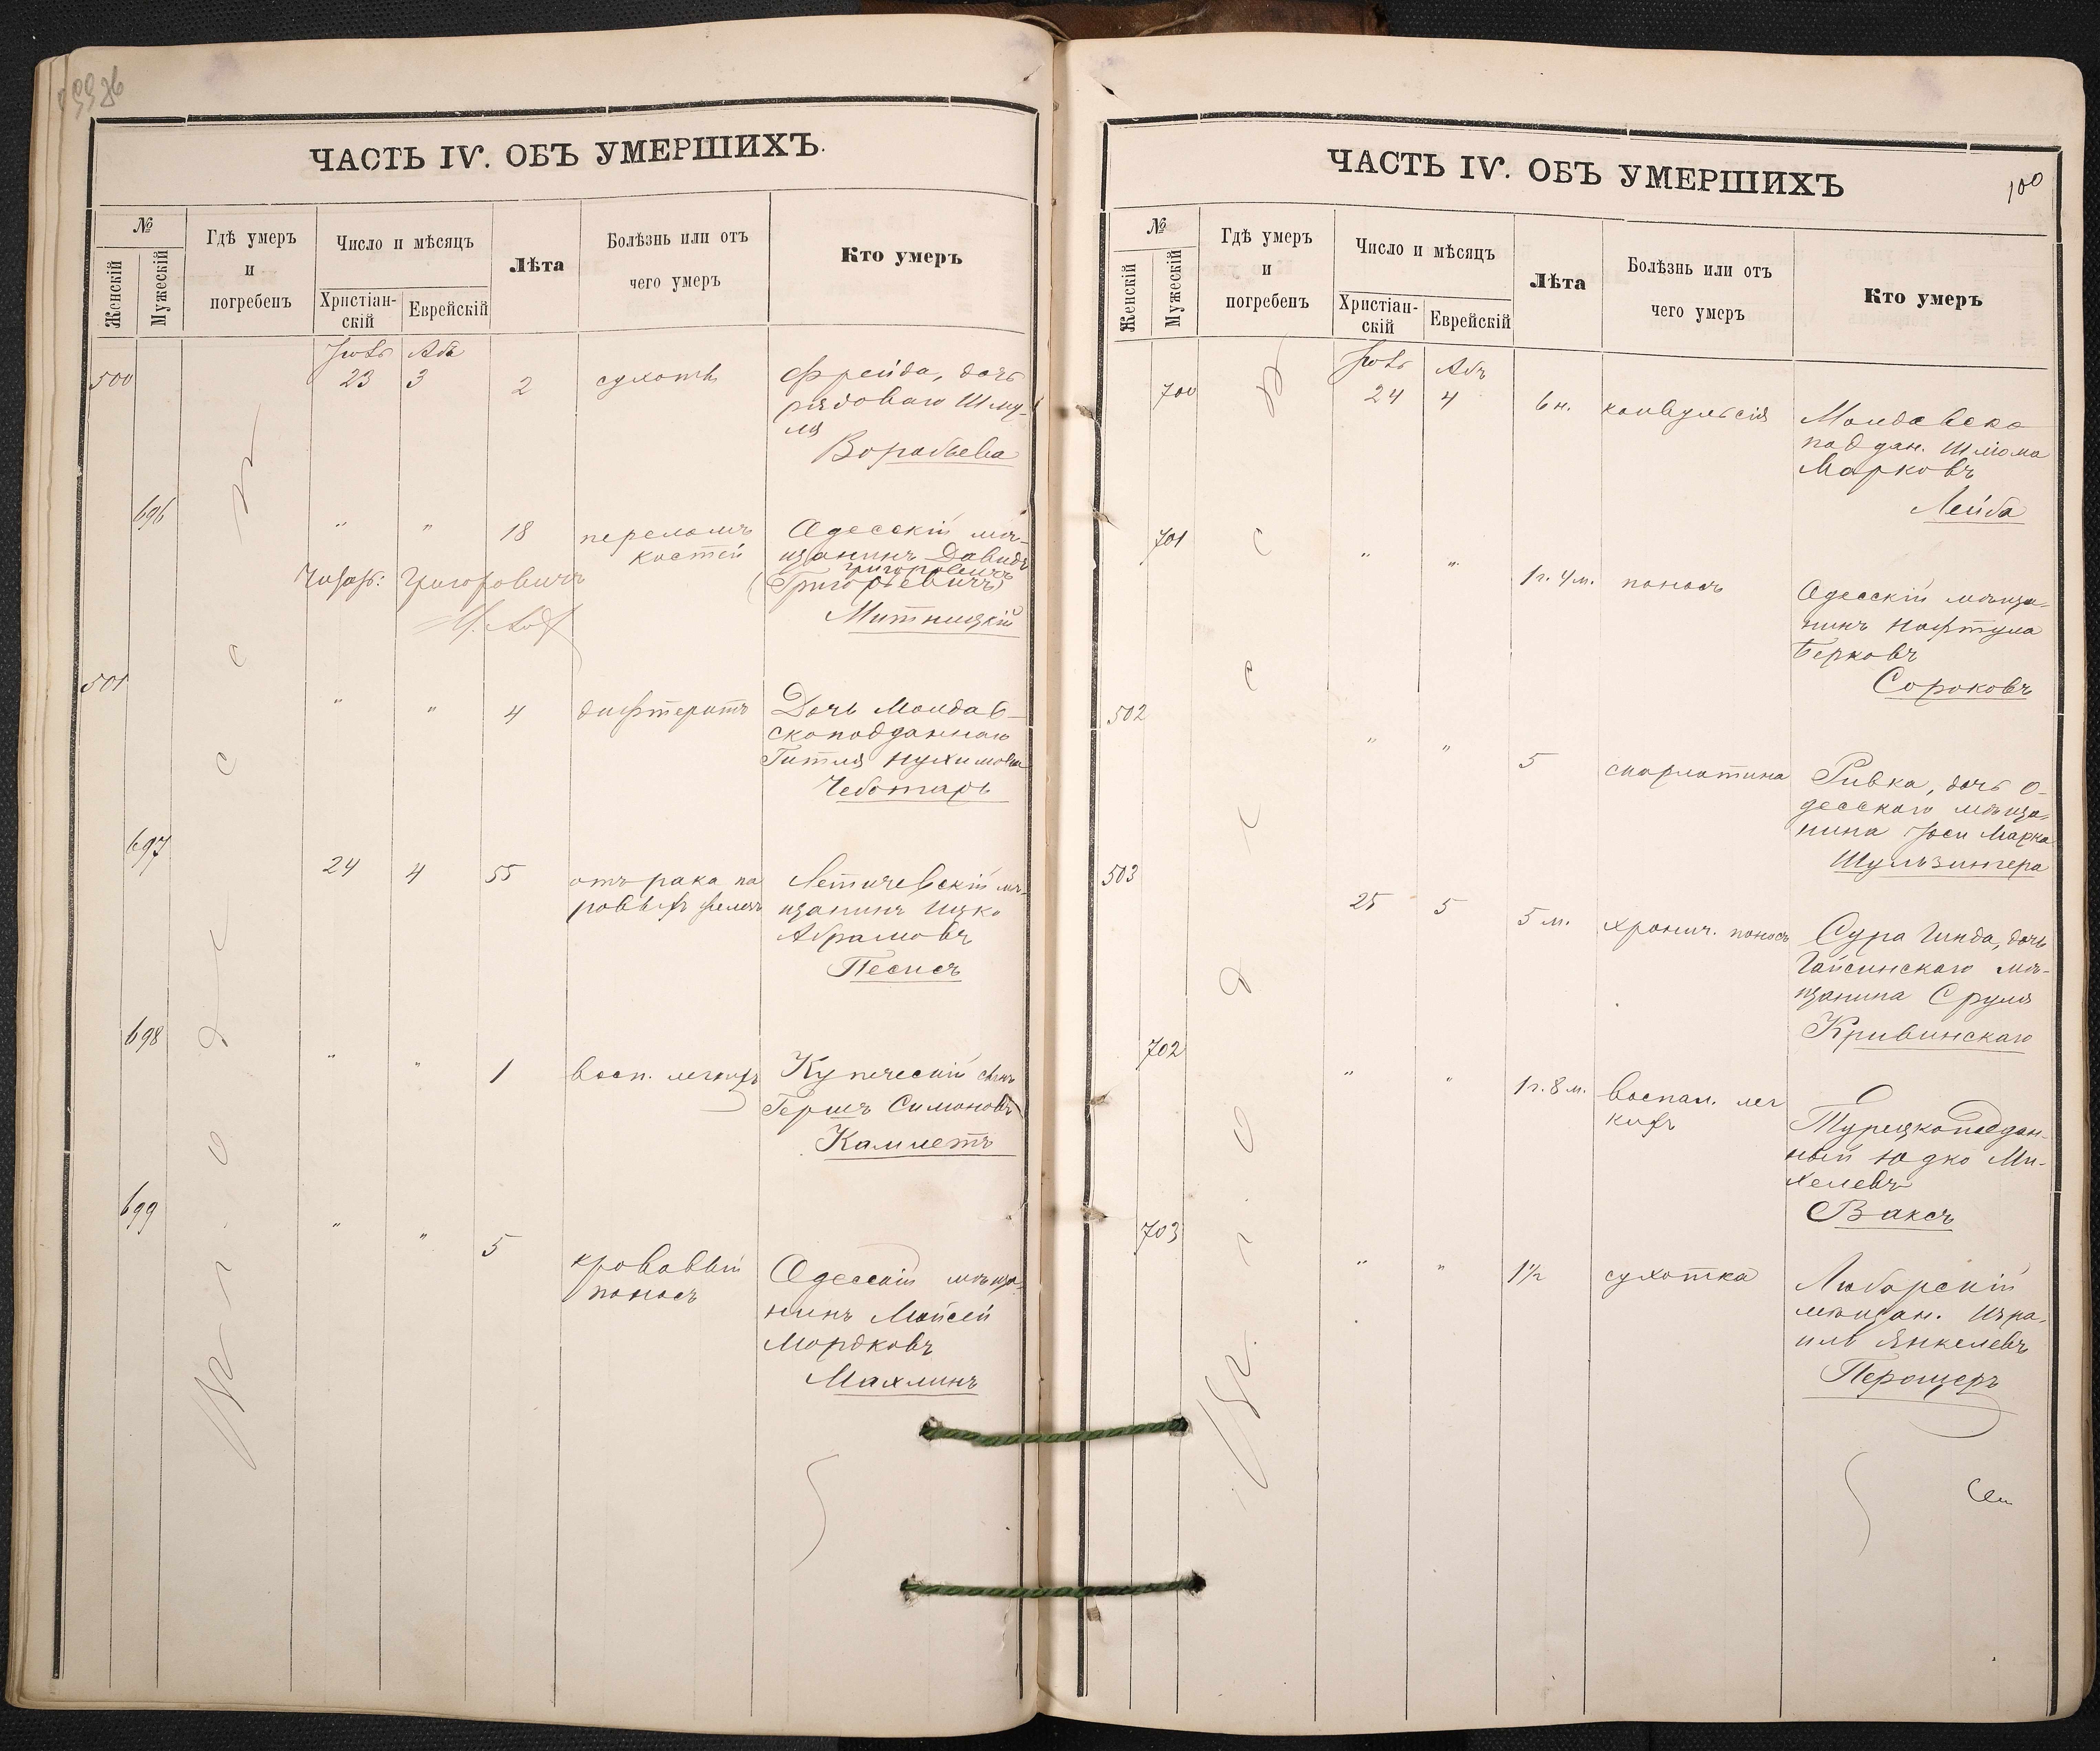 ЧАСТЬ IV. ОБЪ УМЕРШИХЪ.
№
Женскій
Мужескій
Гдѣ умеръ
и
погребенъ
Число и мѣсяцъ
Христіан-
скій
Еврейскій
Лѣта
Болѣзнь или отъ
чего умеръ
Кто умеръ
Въ г. Одессѣ
Іюль Абъ
500 23 3 2 сухотка Фрейда, дочь
рядоваго Шму-
ля
Воробьева
696 " " 18 переломъ Одесскій мѣ-
костей щанинъ Давидъ
Григоровичъ
(Григорьевичъ)
Григоровичъ
Митницкій
501 " " 4 дифтеритъ Дочь Молдав-
скоподданнаго
Гитля Нухимова
Чеботарь
697 24 4 55 отъ рака па Летичевскій мѣ-
ховыхъ желѣзъ щанинъ Ицко
Абрамовъ
Песисъ
698 " " 1 восп. легкихъ Купеческій сынъ
Гершъ Симоновъ
Камметъ
699 " " 5 кровавый
поносъ
Одесскій мѣща-
нинъ Мойсей
Мордковъ
Махлинъ
ЧАСТЬ IV. ОБЪ УМЕРШИХЪ
100
№
Женскій
Мужескій
Гдѣ умеръ
и
погребенъ
Число и мѣсяцъ
Христіан-
скій
Еврейскій
Лѣта
Болѣзнь или отъ
чего умеръ
Кто умеръ
Въ г. Одессѣ
Іюль Абъ
700 24 4 6 н. конвульсія Молдавско
поддан. Шлома
Марковъ
Лейба
701 " " 1 г. 4 м. поносъ Одесскій мѣща-
нинъ Нафтула
Берковъ
Сороковъ
502 " " 5 скарлатина Ривка, дочь О-
десскаго мѣща-
нина Іоси Марка
Шульзингера
503 25 5 5 м. хронич. поносъ Сура Гинда, дочь
Гайсинскаго мѣ-
щанина Сруля
Кривинскаго
702 " " 1 г. 8 м. воспал. лег
кихъ
Турецкоподдан-
ный Юдко Ми-
хелевъ
Ваксъ
703 " " 1½ сухотка Любарскій
мѣщан. Изра-
иль Янкелевъ
Перощеръ